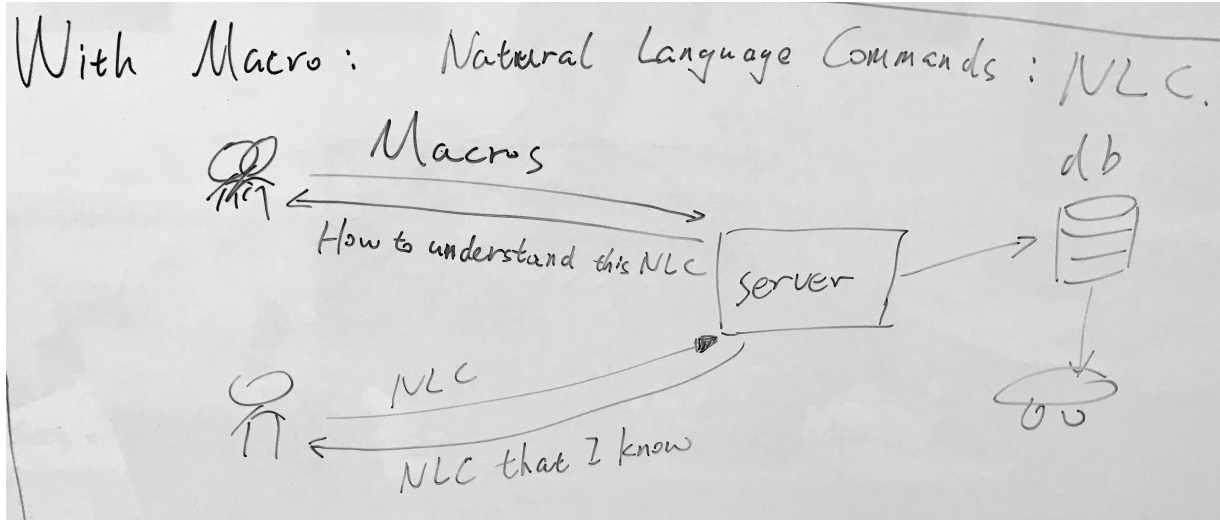 With Macro: Natural Language Commands: NLC.
db
Macros
How to understand this NLC
server
NLC
NLC that I know